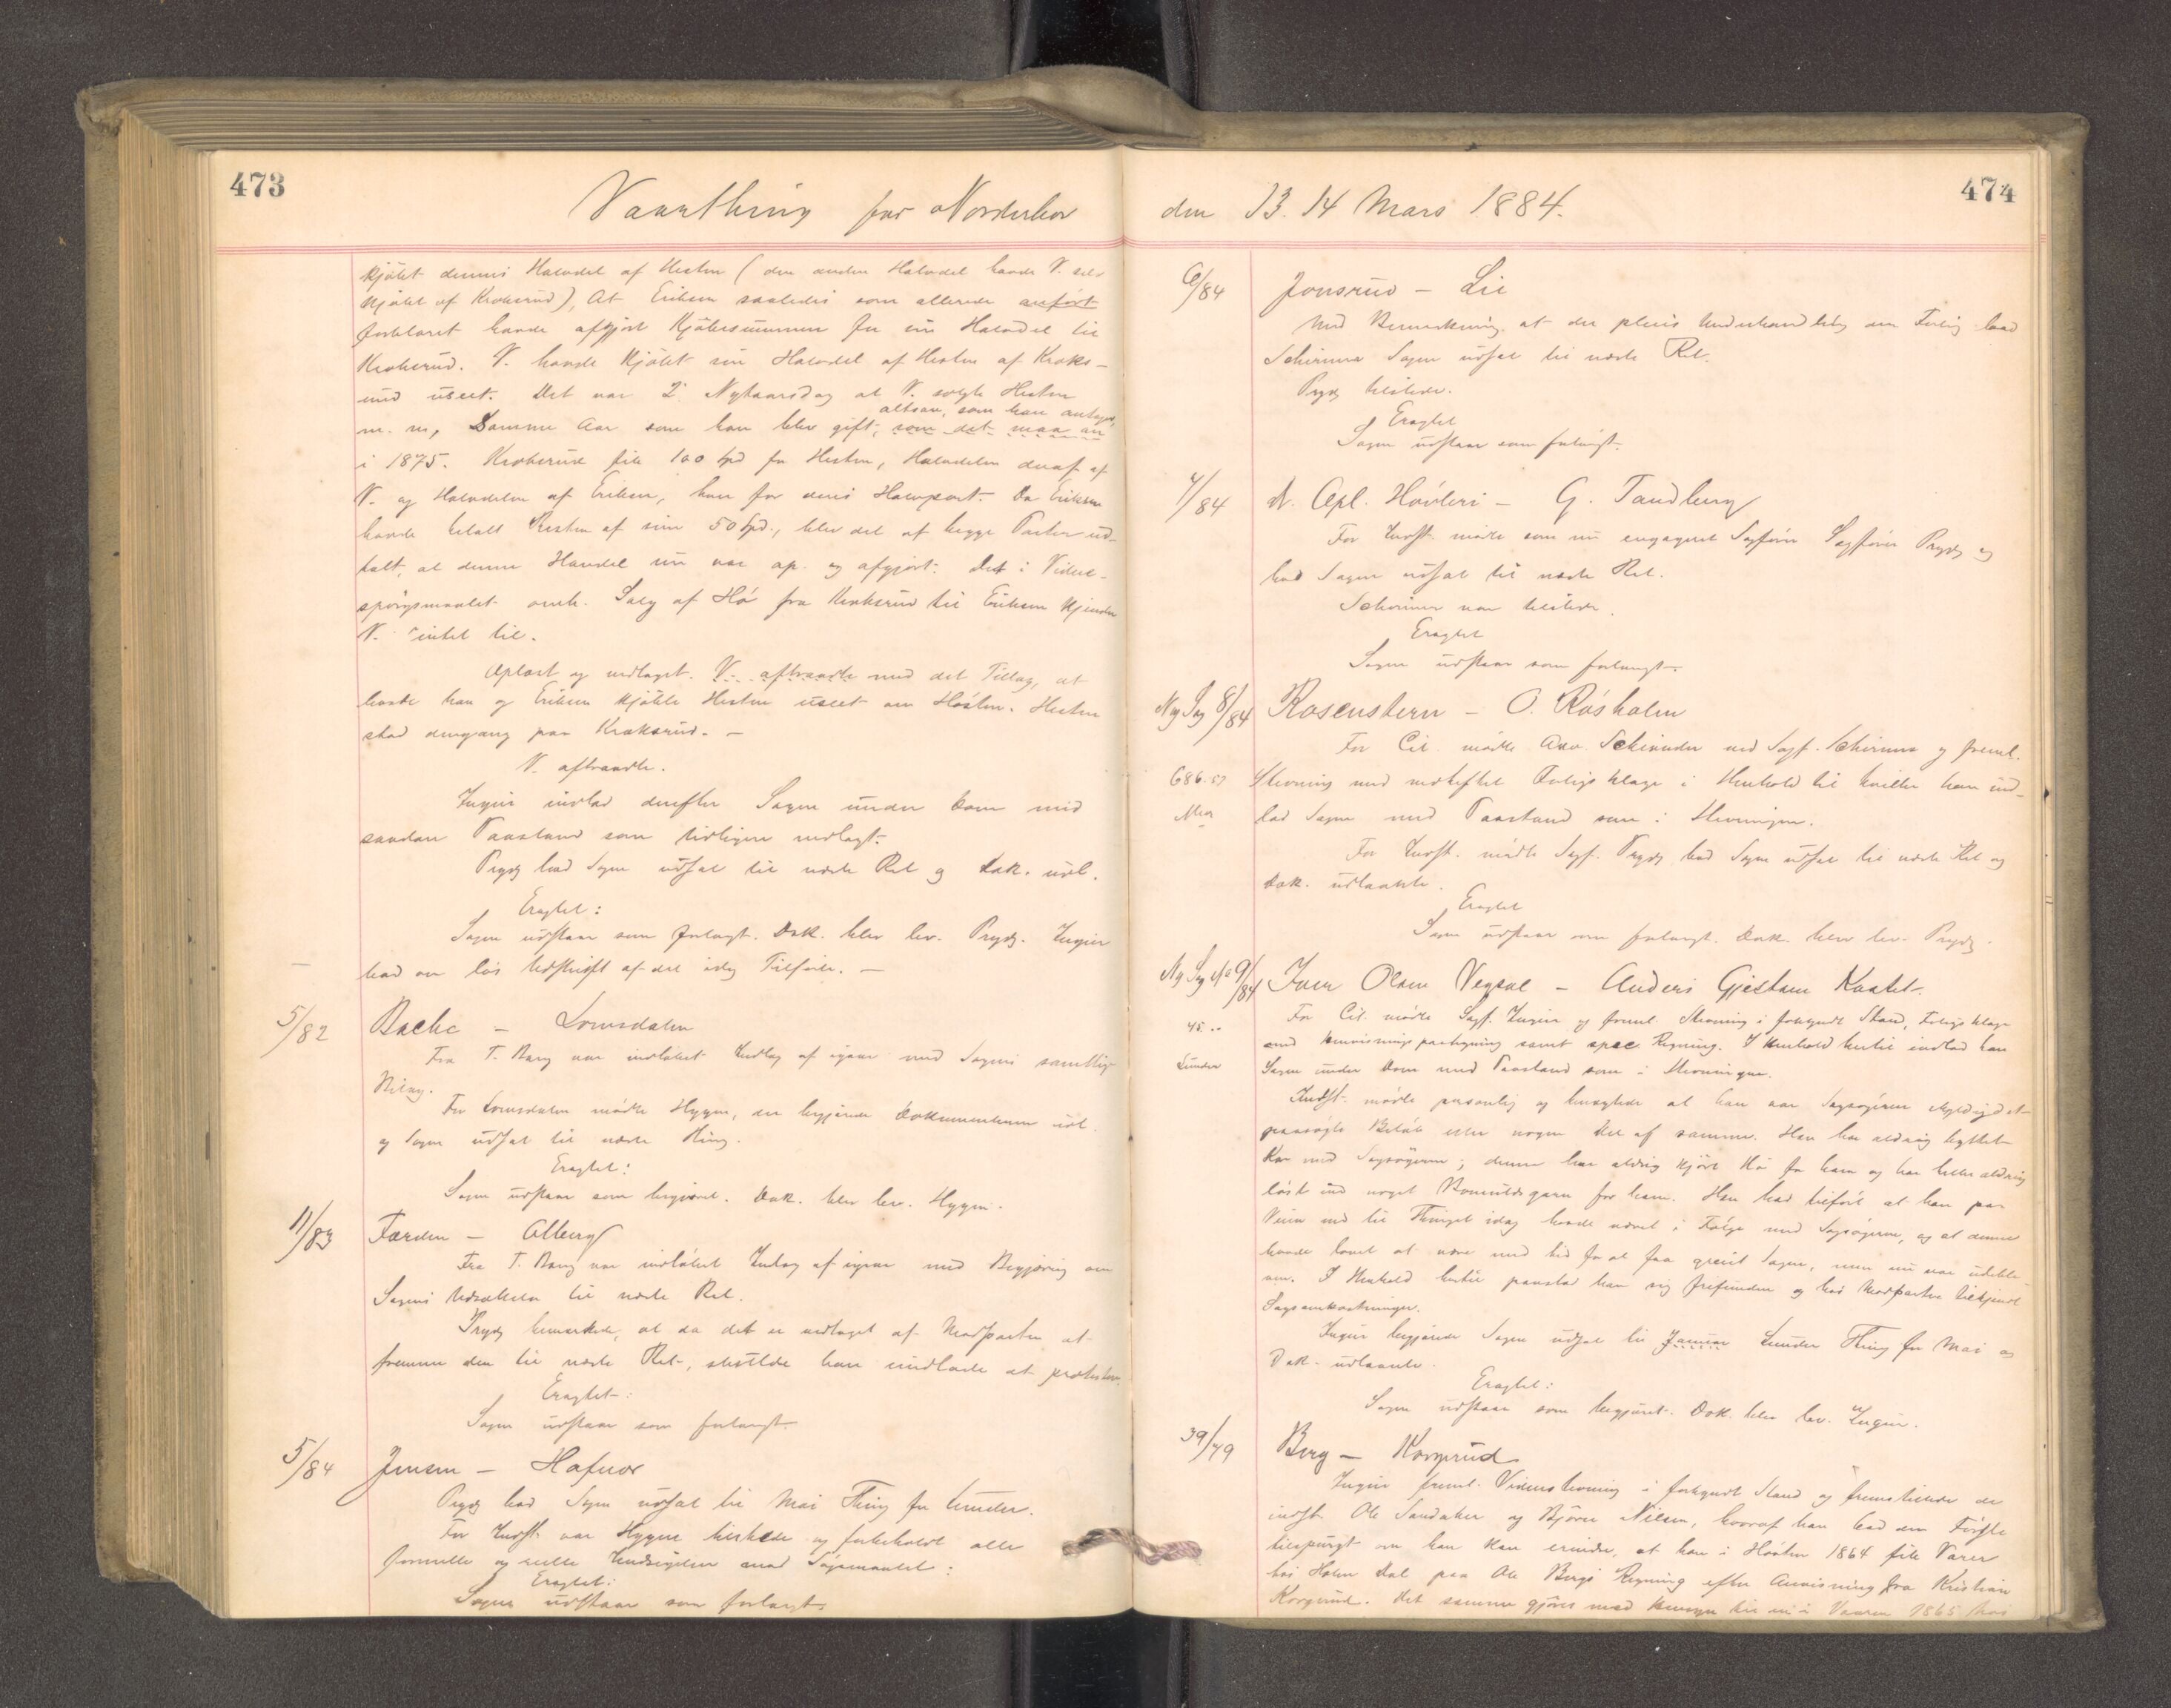 473
Vaarthing for Norderhov
kjøbt dennes Halvdel af Hesten (den anden Halvdel havde V. selv
kjøbt af Kroksrud), At Eriksen saaledes som allerede anført
forklaret havde afgjort Kjøbesummen for sin Halvdel til
Kroksrud. V. havde kjøbt sin Halvdel af Hesten af Kroks-
rud useet. Det var 2. Nytaarsdag at V. solgte Hesten
altsaa, som han antager,
m. m, Samme Aar som han blev gift, som det maa an
i 1875. Kroksrud fik 100 Spd for Hesten, Halvdelen deraf af
V. og Halvdelen af Eriksen, hver for deres Halvpart. Da Eriksen
havde betalt Resten af sine 50 Spd., blev det af begge Parter ud-
talt, at denne Handel nu var op- og afgjort. Det i Vidne-
spørgsmaalet omh. Salg af Hø fra Kroksrud til Eriksen kjender
V. intet til.
Oplæst og vedtaget. V. aftraadte med det Tillæg, at
baade han og Eriksen kjøbte Hesten useet om Høsten. Hesten
stod dengang paa Kroksrud. -
V. aftraadte.
Ingier indlod derefter Sagen under Dom med
saadan Paastand som tidligere nedlagt.
Prydz bad Sagen udsat til næste Ret og Dok. udl.
Eragtet:
Sagen udstaar som forlangt. Dok. blev lev. Prydz. Ingier
bad om løs Udskrift af det idag Tilførte. -
5/82
Bache - Lomsdalen
Fra T. Bang var indløbet Indlæg af igaar med Sagens samtlige
Bilag.
For Lomsdalen mødte Hygen, der begjærede Dokumenterne udl.
og Sagen udsat til næste Thing.
Eragtet:
Sagen udstaar som begjæret. Dok. blev lev. Hygen.
11/83
Færden - Alberg
Fra T. Bang var indløbet Indlæg af igaar med Begjæring om
Sagens Udsættelse til næste Ret.
Prydz bemærkede, at da det er vedtaget af Modparten at
fremme den til næste Ret, skulde han undlade at protestere.
Eragtet:
Sagen udstaar som forlangt.
5/84
Jensen - Hafnor
Prydz bad Sagen udsat til Mai Thing for Lunder.
For Indst. var Hygen tilstede og forbeholdt alle
formelle og reelle Indsigelser mod Søgsmaalet:
Eragtet:
Sagen udstaar som forlangt.
den 13. 14 Mars 1884.
474
6/84
Jonsrud - Lie
Med Bemærkning at der pleies Underhandling om Forlig bad
Schirmer Sagen udsat til næste Ret.
Prydz tilstede.
Eragtet
Sagen udstaar som forlangt.
4/84
A. Apl. Høvleri - G. Tandberg
For Indst. mødte som nu engageret Sagfører Sagfører Prydz og
bad Sagen udsat til næste Ret.
Schirmer var tilstede.
Eragtet
Sagen udstaar som forlangt.
Ny Sag 8/84
Rosenstern - O. Røsholm
For Cit. mødte Adv. Schiander ved Sagf. Schirmer og freml.
686.57
Stevning med vedheftet Forligsklage i Henhold til hvilken han ind-
lod Sagen med Paastand som i Stevningen.
For Indst. mødte Sagf. Prydz, bad Sagen udsat til næste Ret og
Dok. udlaante.
Eragtet
Sagen udstaar som forlangt. Dok. blev lev. Prydz.
Ny Sag No 9/84
Iver Olsen Vegsal - Anders Gjestem
45 ..
For Cit. mødte Sagf. Ingier og freml. Stevning i forkyndt Stand, Forligsklage
med Henvisningspaategning samt spec. Regning. I Henhold hertil indlod han
Lunder
Sagen under Dom med Paastand som i Stevningen.
Indst. mødte personlig og benegtede at han var Sagsøgeren skyldig det
paasøgte Beløb eller nogen Del af samme. Han har aldrig byttet
Kar med Sagsøgeren; denne har aldrig kjørt Hø for ham og har heller aldrig
løst ind noget Bomuldsgarn for ham. Han bad tilført at han paa
Veien ned til Thinget idag havde været i Følge med Sagsøgeren, og at denne
havde lovet at være med hid for at faa greiet Sagen, men nu var udeble-
ven. I Henhold hertil paastod han sig frifunden og hos Modparten tilkjendt
Sagsomkostninger.
Ingier begjærede Sagen udsat til Januar Lunder Thing for Mai og
Dok. udlaante.
Eragtet:
Sagen udstaar som begjæret. Dok. blev lev. Ingier.
39/79
Berg - Korsrud
Ingier freml. Vidnestevning i forkyndt Stand og fremstillede de
indst. Ole Sandaker og Bjørn Nilsen, hvoraf han bad den Første
tilspurgt om han kan erindre, at han i Høsten 1864 fik Varer
hos Holm Dal paa Ole Bergs Regning efter Anvisning fra Kristian
Korsrud. Det samme gjøres med Hensyn til en i Vaaren 1865 hos